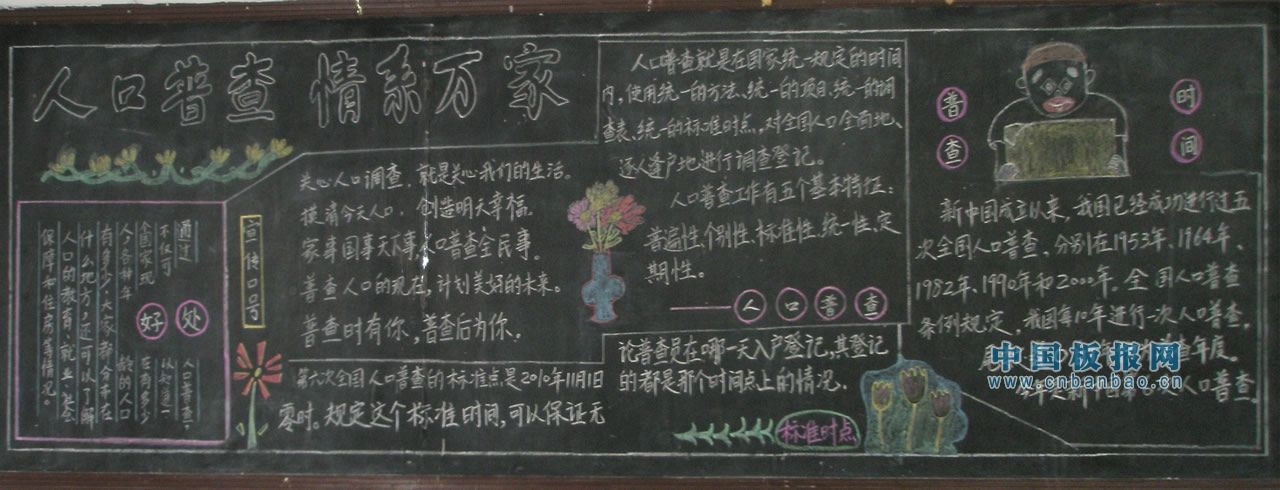 人口普查 情系万家
通过人口普查,
不仅可以知道一
个国家现在有多少
人,各种年龄的人口
有多少,大家都分布在
什么地方,还可以了解
人口的教育、就业、社会
保障和住房等情况。
好处
宣传口号
关心人口调查,就是关心我们的生活。
摸清今天人口,创造明天幸福。
家事国事天下事,人口普查全民事。
普查人口的现在,计划美好的未来。
普查时有你,普查后为你。
人口普查就是在国家统一规定的时间
内,使用统一的方法、统一的项目、统一的调
查表、统一的标准时点,对全国人口全面地、
逐人逐户地进行调查登记。
人口普查工作有五个基本特征:
普遍性、个别性、标准性、统一性、定
期性。
人口普查
第六次全国人口普查的标准点是2010年11月1日
零时。规定这个标准时间,可以保证无
论普查员在哪一天入户登记,其登记
的都是那个时间点上的情况.
标准时点
普查
时间
新中国成立以来,我国已经成功进行过五
次全国人口普查,分别在1953年、1964年、
1982年、1990年和2000年。全国人口普查
条例规定,我国每10年进行一次人口普查,
查年度。
人口普查。
中国板报网
www.cnbanbao.cn